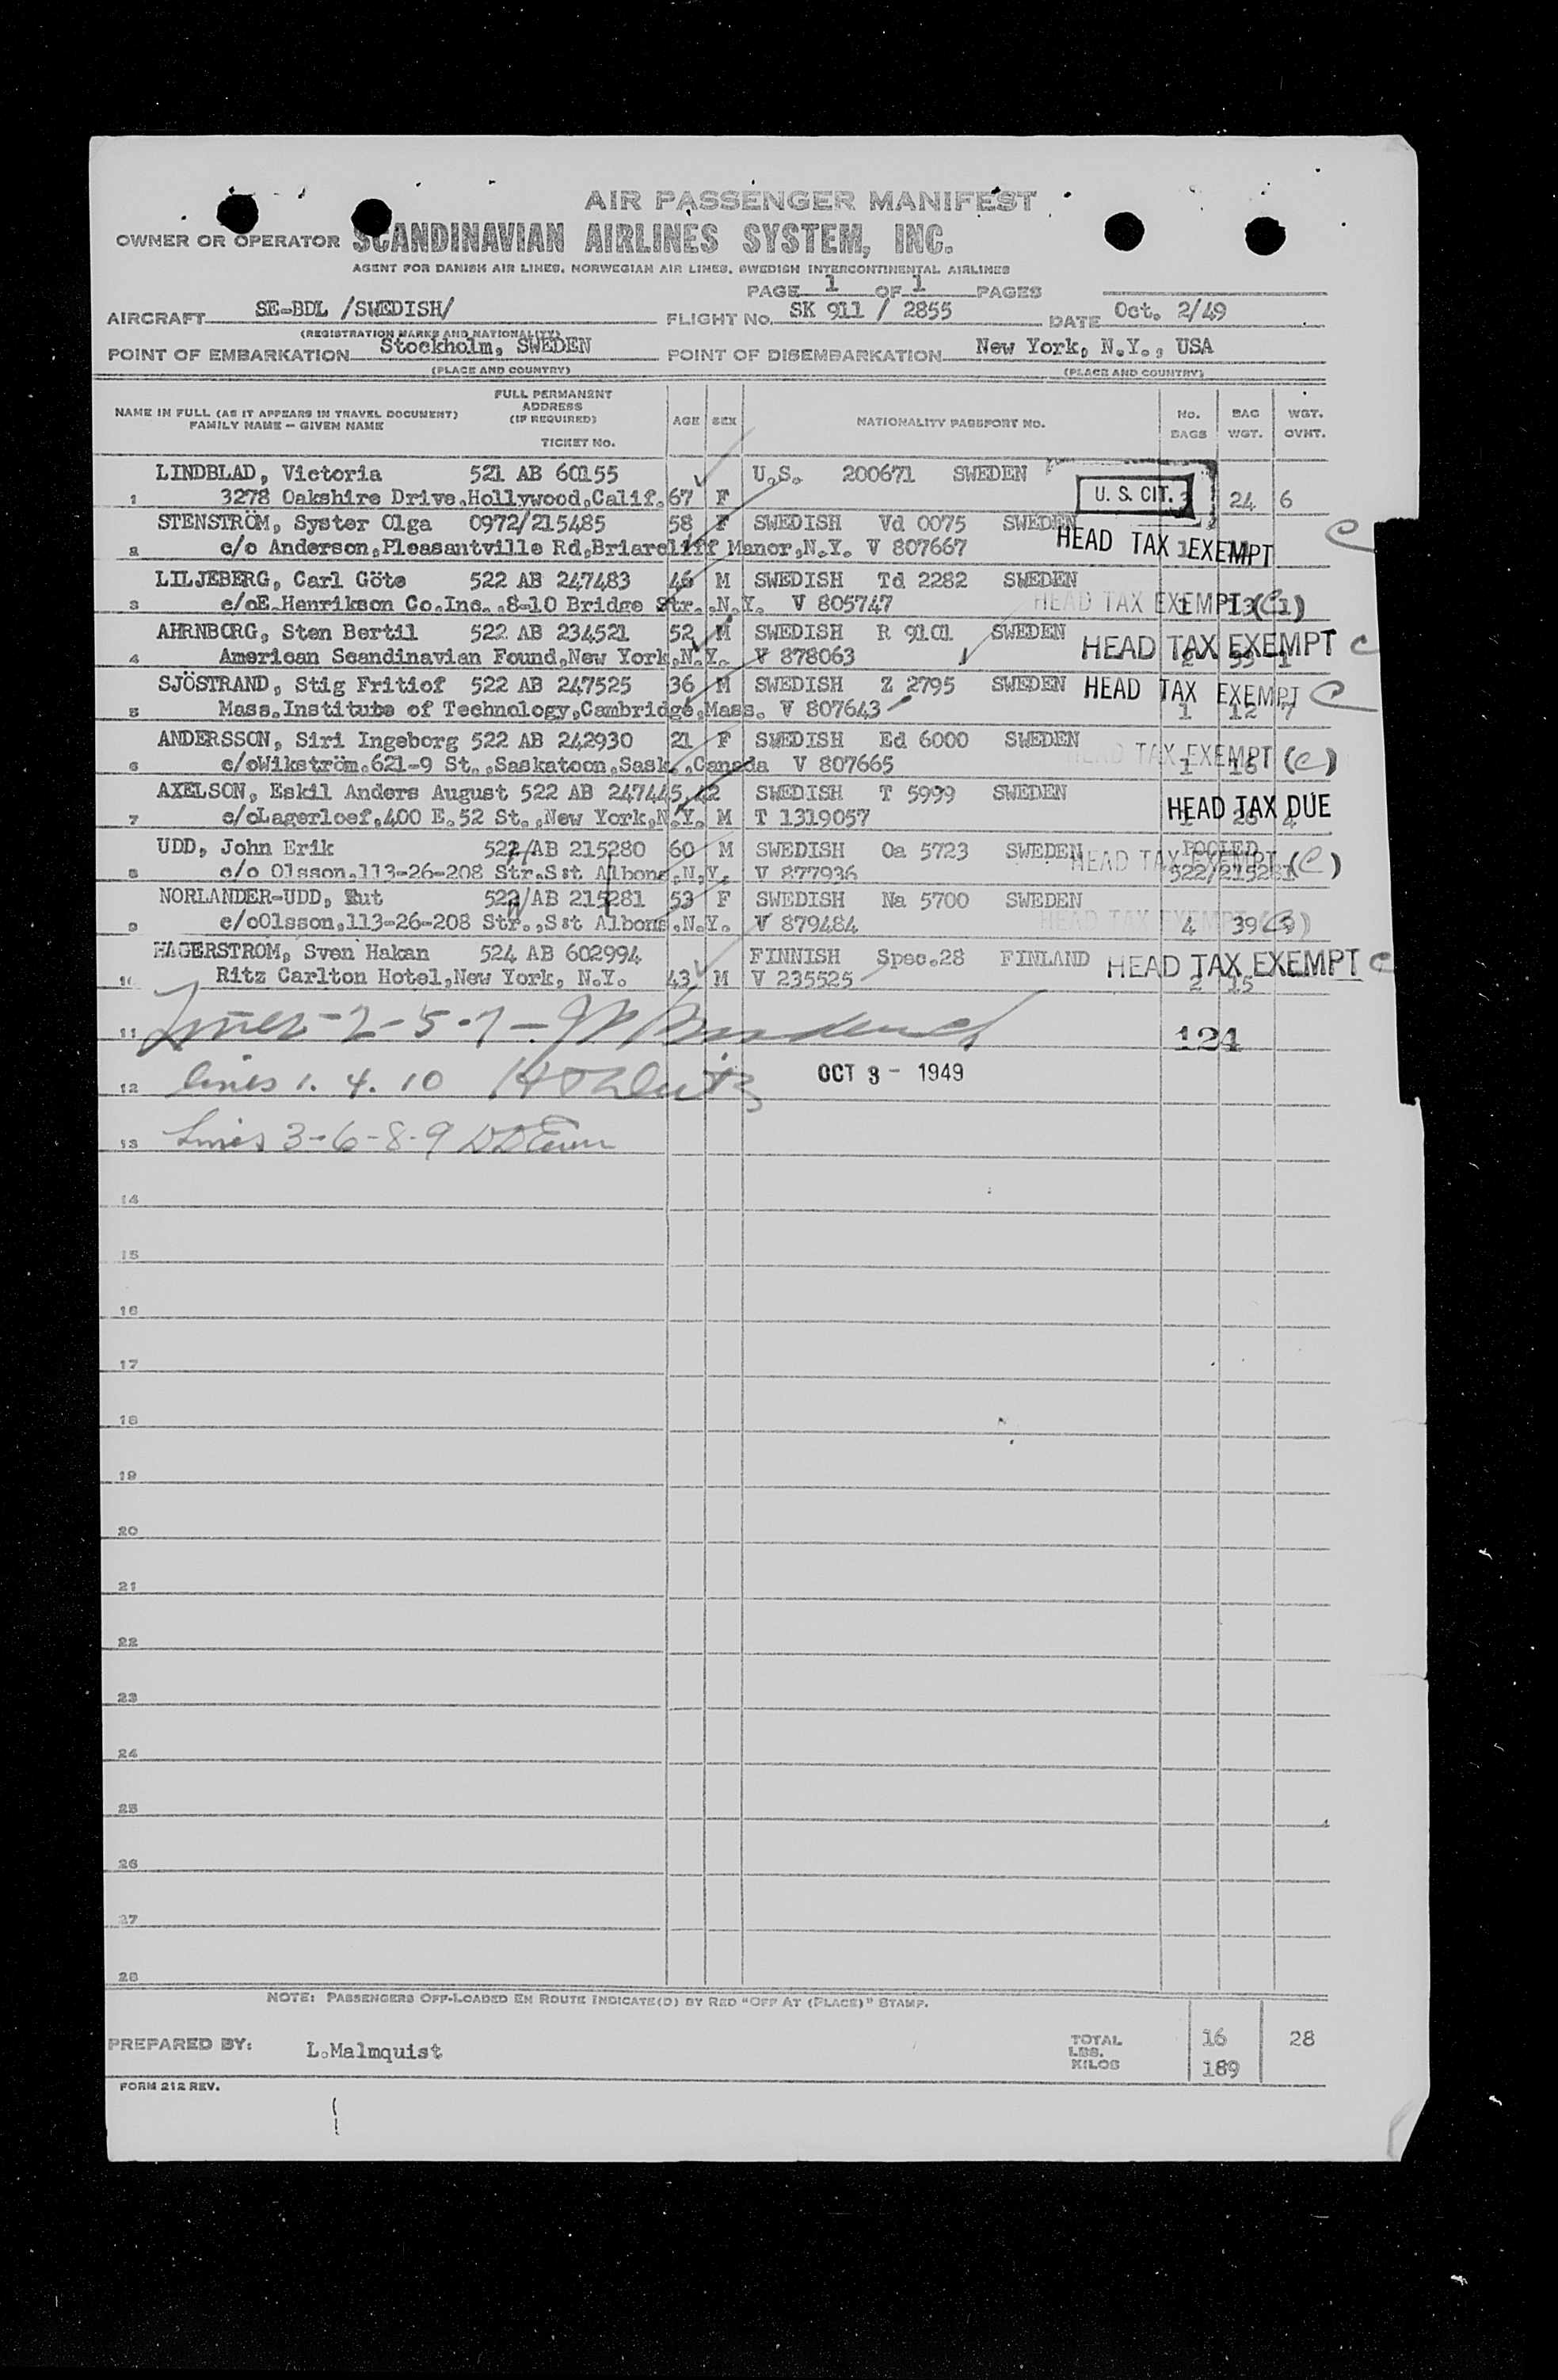 AIR PASSENGER MANIFEST
OWNER OR OPERATOR SCANDINAVIAN AIRLINES SYSTEM, INC.
AGENT FOR DANISH AIR LINES, NORWEGIAN AIR LINES, SWEDISH INTERCONTINENTAL AIRLINES
PAGE 1 OF 1 PAGES
AIRCRAFT SE-BDL /SWEDISH/ FLIGHT NO. SK 911 / 2855 DATE Oct. 2/49
(REGISTRATION MARKS AND NATIONALITY)
POINT OF EMBARKATION Stockholm, SWEDEN POINT OF DISEMBARKATION New York, N.Y., USA
(PLACE AND COUNTRY) (PLACE AND COUNTRY)
NAME IN FULL (AS IT APPEARS IN TRAVEL DOCUMENT) FAMILY NAME - GIVEN NAME FULL PERMANENT ADDRESS (IF REQUIRED) TICKET NO. AGE SEX NATIONALITY PASSPORT NO. No. BAGS BAG WGT. WGT. OVHT.
LINDBLAD, Victoria 521 AB 60155 U.S. 200671 SWEDEN
1 3278 Oakshire Drive.Hollywood,Calif. 67 F U. S. CIT. 3 24 6
STENSTRÖM, Syster Olga 0972/215485 58 F SWEDISH Vd 0075 SWEDEN
2 c/o Anderson,Pleasantville Rd,Briarcliff Manor,N.Y. V 807667 HEAD TAX EXEMPT C
LILJEBERG, Carl Göte 522 AB 247483 46 M SWEDISH Td 2282 SWEDEN
3 c/oE.Henrikson Co.Inc.,8-10 Bridge Str.,N.Y. V 805747 HEAD TAX EXEMPT (C)
AHRNBORG, Sten Bertil 522 AB 234521 52 M SWEDISH R 9101 SWEDEN
4 American Scandinavian Found,New York,N.Y. V 878063 HEAD TAX EXEMPT C
SJÖSTRAND, Stig Fritiof 522 AB 247525 36 M SWEDISH Z 2795 SWEDEN HEAD TAX EXEMPT C
5 Mass.Institute of Technology,Cambridge,Mass. V 807643 1 12 7
ANDERSSON, Siri Ingeborg 522 AB 242930 21 F SWEDISH Ed 6000 SWEDEN
6 c/oWikström.621-9 St.,Saskatoon,Sask.,Canada V 807665 HEAD TAX EXEMPT (C) 1 16
AXELSON, Eskil Anders August 522 AB 247445 42 SWEDISH T 5999 SWEDEN
7 c/oLagerloef,400 E.52 St.,New York,N.Y. M T 1319057 HEAD TAX DUE
UDD, John Erik 522/AB 215280 60 M SWEDISH Oa 5723 SWEDEN POOLED
8 c/o Olsson.113-26-208 Str.S:t Albons,N.Y. V 877936 HEAD TAX EXEMPT (C) 522/215281
NORLANDER-UDD, Rut 522/AB 215281 53 F SWEDISH Na 5700 SWEDEN
9 c/oOlsson.113-26-208 Str.,S:t Albons,N.Y. V 879484 HEAD TAX EXEMPT (C) 4 39
HAGERSTROM, Sven Hakan 524 AB 602994 FINNISH Spec.28 FINLAND HEAD TAX EXEMPT C
10 Ritz Carlton Hotel,New York, N.Y. 43 M V 235525 2 15
11 Lines-2-5-7- 124
12 lines 1. 4. 10 OCT 3 - 1949
13 Lines 3-6-8-9
14
15
16
17
18
19
20
21
22
23
24
25
26
27
28
NOTE: PASSENGERS OFF-LOADED EN ROUTE INDICATE(D) BY RED "OFF AT (PLACE)" STAMP.
PREPARED BY: L.Malmquist TOTAL LBS. KILOS 16 28
189
FORM 212 REV.